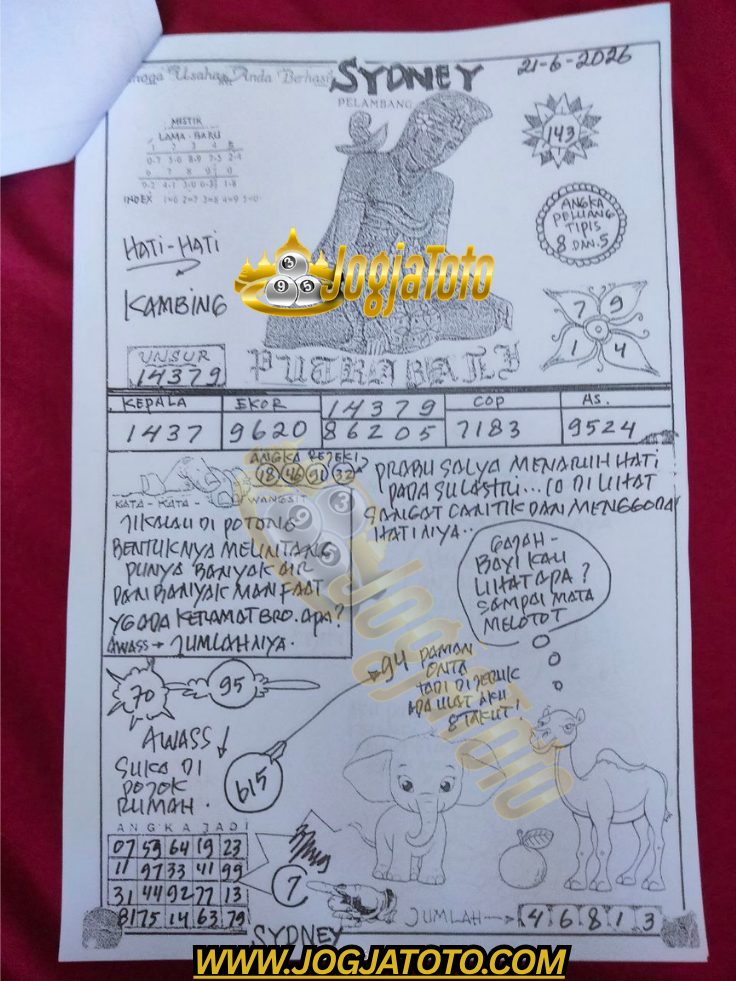 Semoga Usaha Anda Berhasil
SYDNEY
21-6-2026
PELAMBANG
MISTIK
LAMA - BARU
1 2 3 4 5
0-7 5-6 8-9 7-3 2-4
6 7 8 9 0
0-2 4-1 3-0 6-3 1-8
INDEX 1=6 2=7 3=8 4=9 5=0
143
ANGKA
PELUANG
TIPIS
8 DAN 5
HATI-HATI
KAMBING
JogjaToto
3
9 5
7 9
1 4
UNSUR
14379
PUTRA BALI
KEPALA EKOR 14379 COP AS.
1437 9620 86205 7183 9524
ANGKA REJEKI
18 46 91 32
KATA-KATA WANGSIT
JIKALAU DI POTONG
BENTUKNYA MELINTANG
PUNYA BANYAK AIR
DAN BANYAK MANFAAT
YG ADA KERAMAT BRO. APA?
AWASS → JUMLAHNYA.
PRABU SALYA MENARUH HATI
PADA SULASTRI...
DI LIHAT
SANGAT CANTIK DAN MENGGODA
HATINYA..
GAJAH-
BAYI KAU
LIHAT APA?
SAMPAI MATA
MELOTOT
94 PAMAN
ONTA
TADI DI JERUK
ADA ULAT AKU
TAKUT!
70
95
AWASS
SUKA DI
POJOK
RUMAH.
615
ANGKA JADI
07 59 64 19 23
11 97 33 41 99
31 44 92 77 13
81 75 14 63 79
7
JUMLAH → 4 6 8 1 3
SYDNEY
WWW.JOGJATOTO.COM